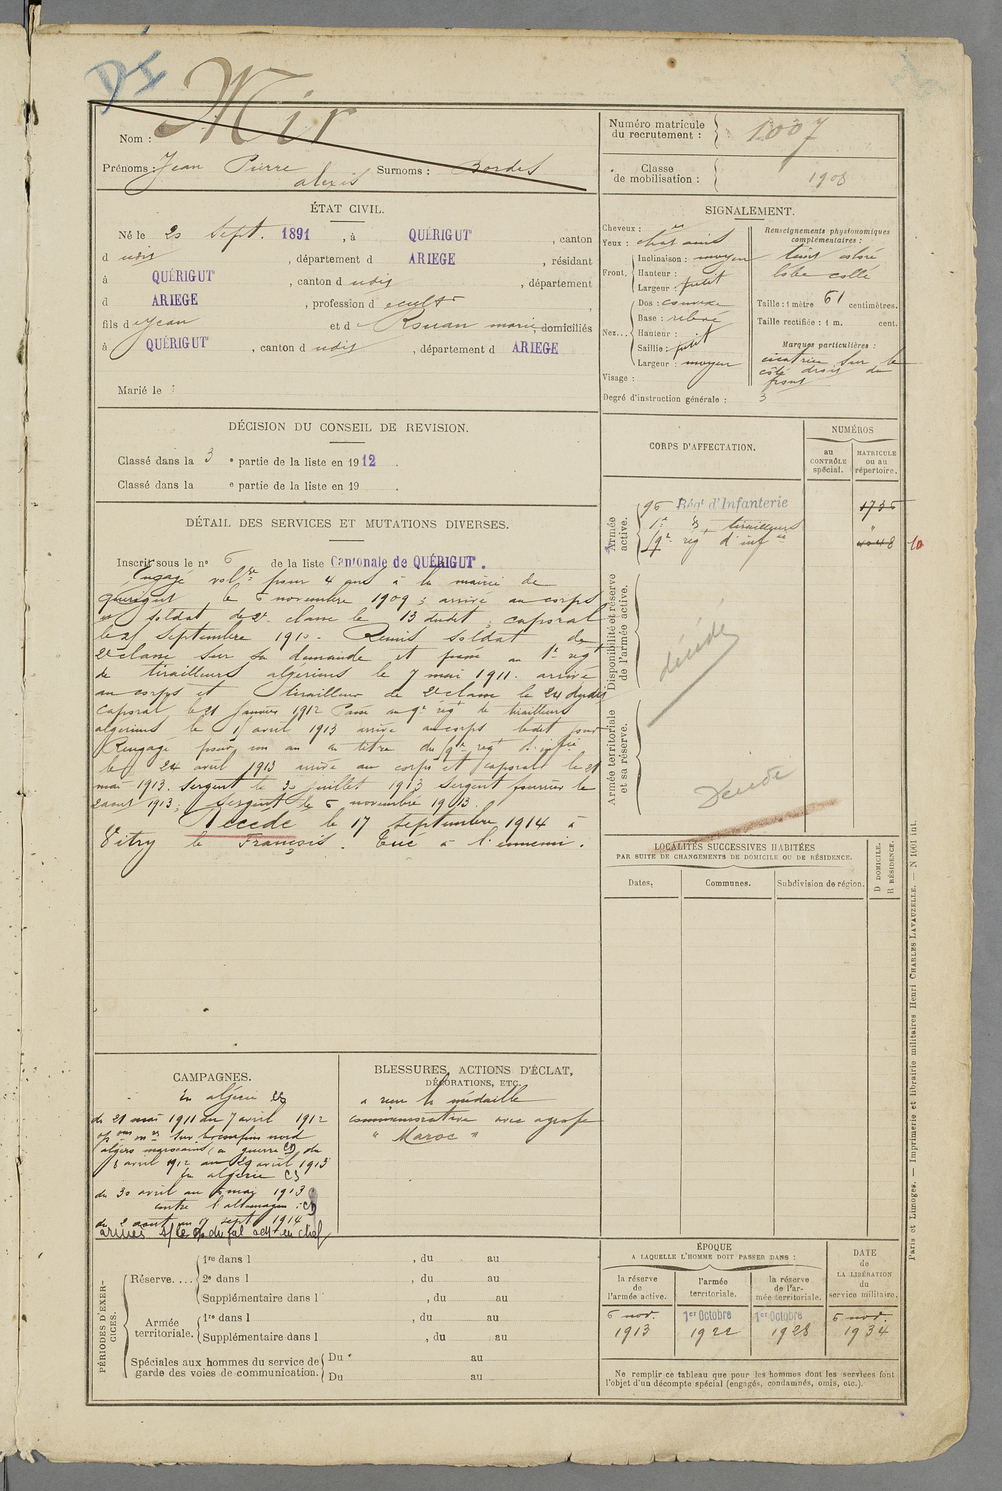 DI
Mir
Nom :
Prénoms : Jean Pierre Alexis Surnoms : Bordes
Numéro matricule du recrutement : 1007
Classe de mobilisation : 1908
ÉTAT CIVIL.
Né le 20 Sept. 1891, à QUÉRIGUT, canton
d udis, département d ARIEGE, résidant
à QUÉRIGUT, canton d udis, département
d ARIEGE, profession d
fils d Jean et d Rouan Marie, domiciliés
à QUÉRIGUT, canton d udis, département d ARIEGE
Marié le :
SIGNALEMENT.
Cheveux : ch
Yeux :
Front. Inclinaison : moyen
Hauteur :
Largeur : petit
Nez... Dos :
Base : relevé
Hauteur :
Saillie : petit
Largeur : moyen
Visage :
Degré d'instruction générale : 3
Renseignements physionomiques complémentaires :
teint coloré
lobe collé
Taille : 1 mètre 61 centimètres.
Taille rectifiée : 1 m. cent.
Marques particulières :
cicatrice sur le
côté droit du
front
DÉCISION DU CONSEIL DE REVISION.
Classé dans la 3e partie de la liste en 1912.
Classé dans la e partie de la liste en 19 .
CORPS D'AFFECTATION.
NUMÉROS
au CONTRÔLE spécial.
MATRICULE ou au répertoire.
Armée active.
96 Régt d'Infanterie 1736
1er do tirailleurs "
9e rég d'infie 10
Disponibilité et réserve de l'armée active.
décédé
Armée territoriale et sa réserve.
Décédé
DÉTAIL DES SERVICES ET MUTATIONS DIVERSES.
Inscrit sous le no 6 de la liste Cantonale de QUÉRIGUT.
Engagé volre pour 4 ans à la mairie de
Quérigut le 6 novembre 1909 ; arrivé au corps
et soldat de 2e classe le 13 dudit ; caporal
le 25 septembre 1910. Remis soldat de
2e classe sur sa demande et passé au 1er régt
de tirailleurs algériens le 7 mai 1911. arrivé
au corps et tirailleur de 2e classe le 21 dudit
caporal le 21 janvier 1912 Passé au 9e régt de tirailleurs
algériens le 1 avril 1913 arrivé au corps ledit jour
Rengagé pour un an au titre du 9e régt d'infie
le 24 avril 1913 arrivé au corps et caporal le 21
mai 1913. Sergent le 30 juillet 1913 Sergent fourrier le
2 aout 1913 ; Sergent le 6 novembre 1913.
Décédé le 17 septembre 1914 à
Vitry le François. Tué à l'ennemi.
LOCALITÉS SUCCESSIVES HABITÉES
PAR SUITE DE CHANGEMENTS DE DOMICILE OU DE RÉSIDENCE.
Dates. Communes. Subdivision de région. D DOMICILE. R RÉSIDENCE.
CAMPAGNES.
En algérie
du 21 mai 1911 au 7 avril 1912
confins nord
algéro marocains, en guerre du
8 avril 1912 au 29 avril 1913
En algérie
du 30 avril au mai 1913
contre l'allemagne :
du 2 aout au 17 sept 1914
armées
BLESSURES, ACTIONS D'ÉCLAT,
DÉCORATIONS, ETC.
a reçu la médaille
commémorative avec agrafe
" Maroc "
PÉRIODES D'EXERCICES.
Réserve.... 1re dans l , du au
2e dans l , du au
Supplémentaire dans l , du au
Armée territoriale. 1re dans l , du au
Supplémentaire dans l , du au
Spéciales aux hommes du service de garde des voies de communication. Du au
Du au
ÉPOQUE
A LAQUELLE L'HOMME DOIT PASSER DANS :
la réserve de l'armée active. l'armée territoriale. la réserve de l'armée territoriale.
DATE de LA LIBÉRATION du service militaire.
6 nov. 1913 1er Octobre 1922 1er Octobre 1928 6 nov. 1934
Ne remplir ce tableau que pour les hommes dont les services font
l'objet d'un décompte spécial (engagés, condamnés, omis, etc.).
Paris et Limoges. — Imprimerie et librairie militaires Henri CHARLES LAVAUZELLE. — N 1001 int.